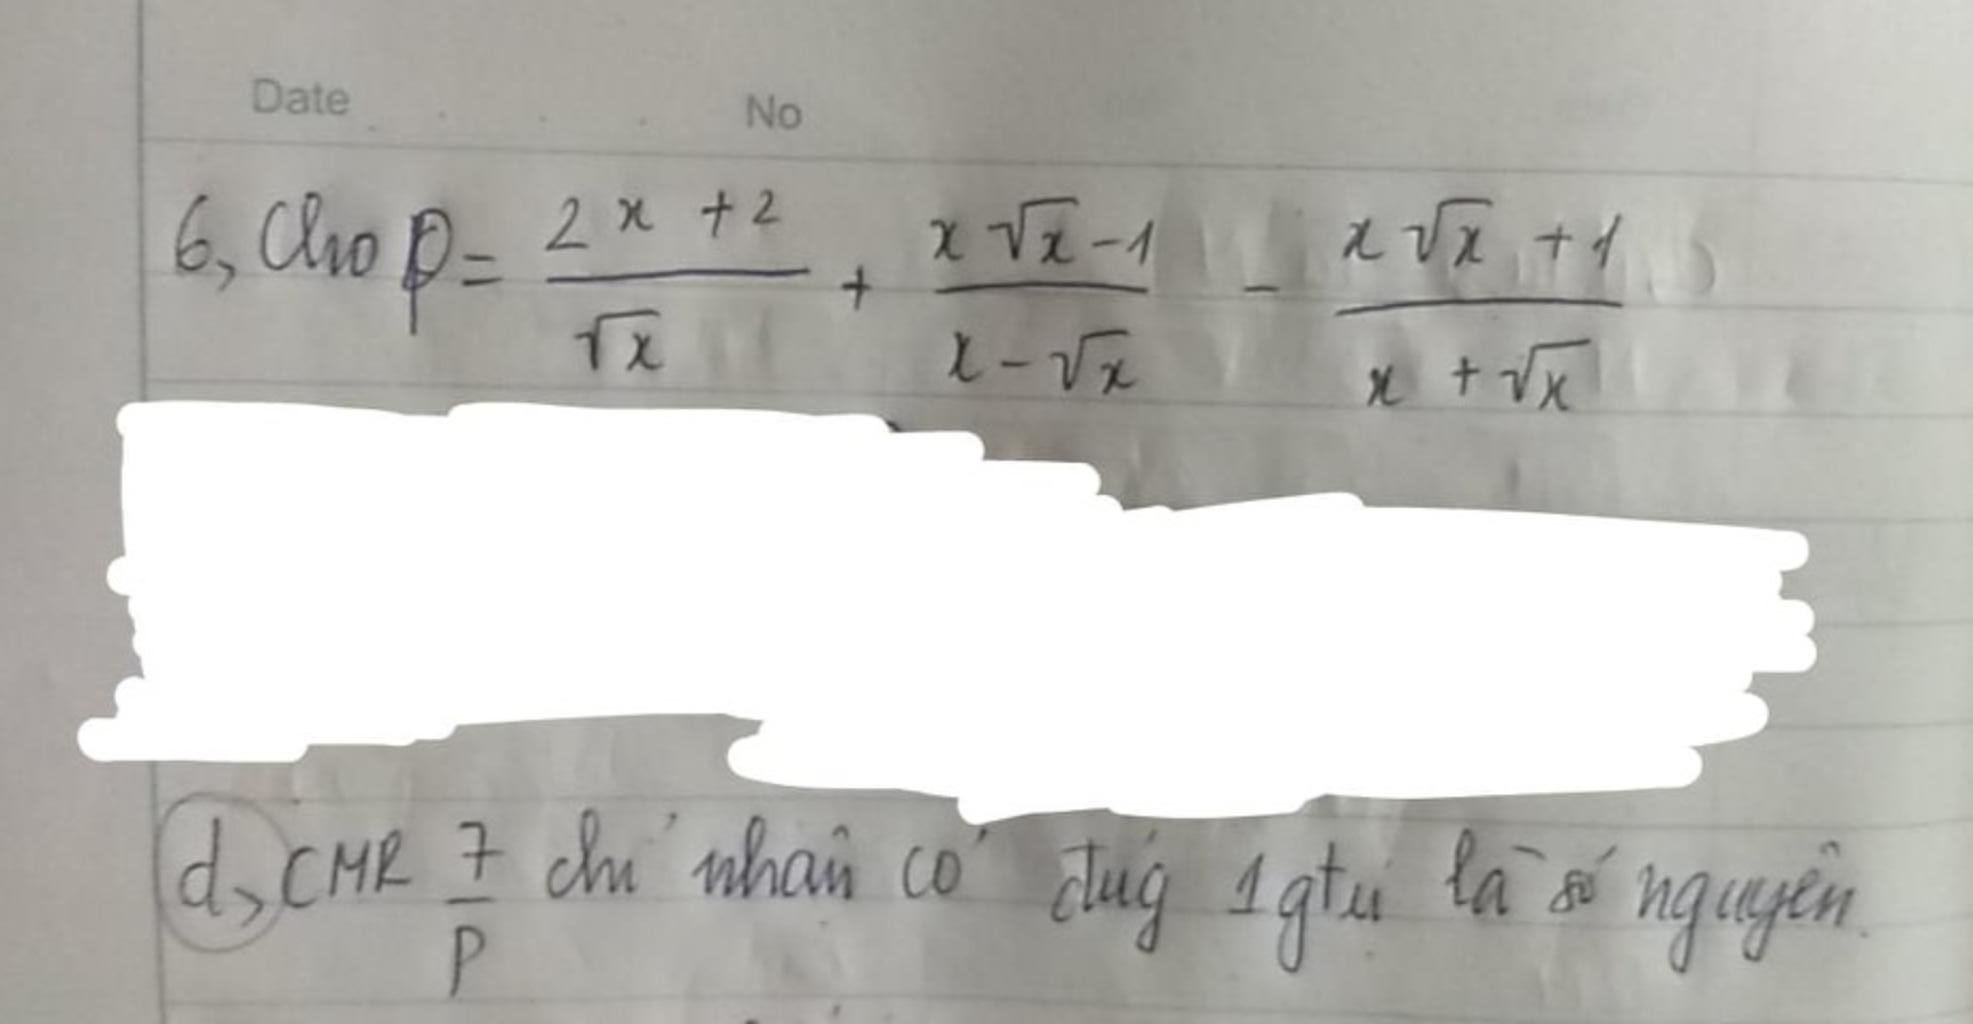 Date No
6, Cho P = \frac{2x+2}{\sqrt{x}} + \frac{x\sqrt{x}-1}{x-\sqrt{x}} - \frac{x\sqrt{x}+1}{x+\sqrt{x}}
d, CMR \frac{7}{P} chỉ nhận có đúg 1 gtrị là số nguyên.